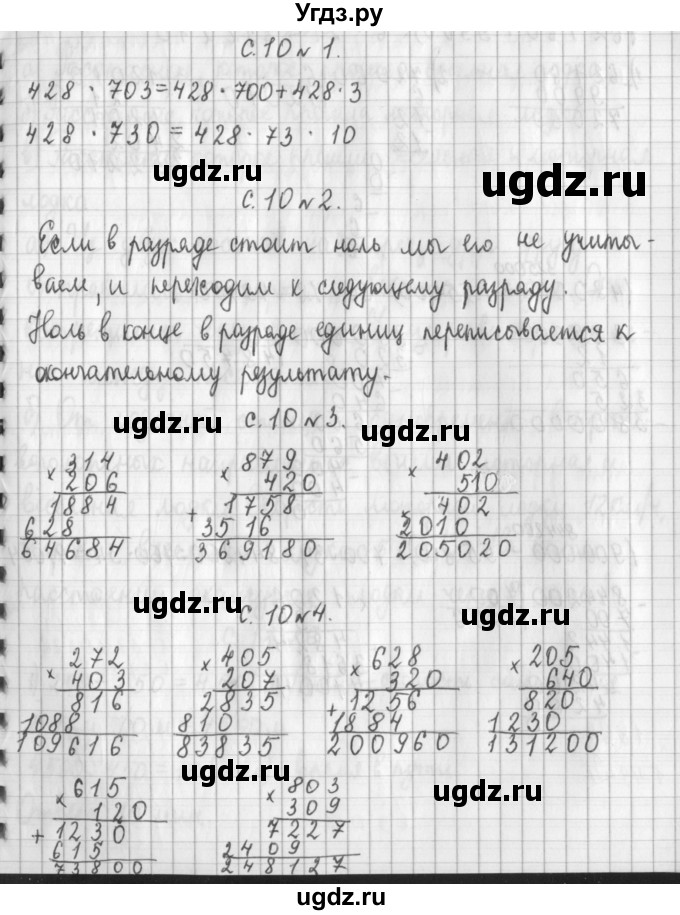 Угдз.ру
с.10 № 1.
428 · 703 = 428 · 700 + 428 · 3
428 · 730 = 428 · 73 · 10
ugdz.ru ugdz.ru
с.10 № 2.
Если в разряде стоит ноль мы его не учиты-
ваем, и переходим к следующему разряду.
Ноль в конце в разряде единиц переписывается к
окончательному результату.
ugdz.ru ugdz.ru
с.10 № 3.
× 314 × 879 × 402
206 420 510
1884 + 1758 × 402
628 3516 2010
64684 369180 205020
ugdz.ru ugdz.ru
с.10 № 4.
× 272 × 405 × 628 × 205
403 207 320 640
816 2835 + 1256 820
1088 810 1884 1230
109616 83835 200960 131200
ugdz.ru ugdz.ru
× 615 × 803
120 309
+ 1230 7227
615 2409
73800 248127
ugdz.ru